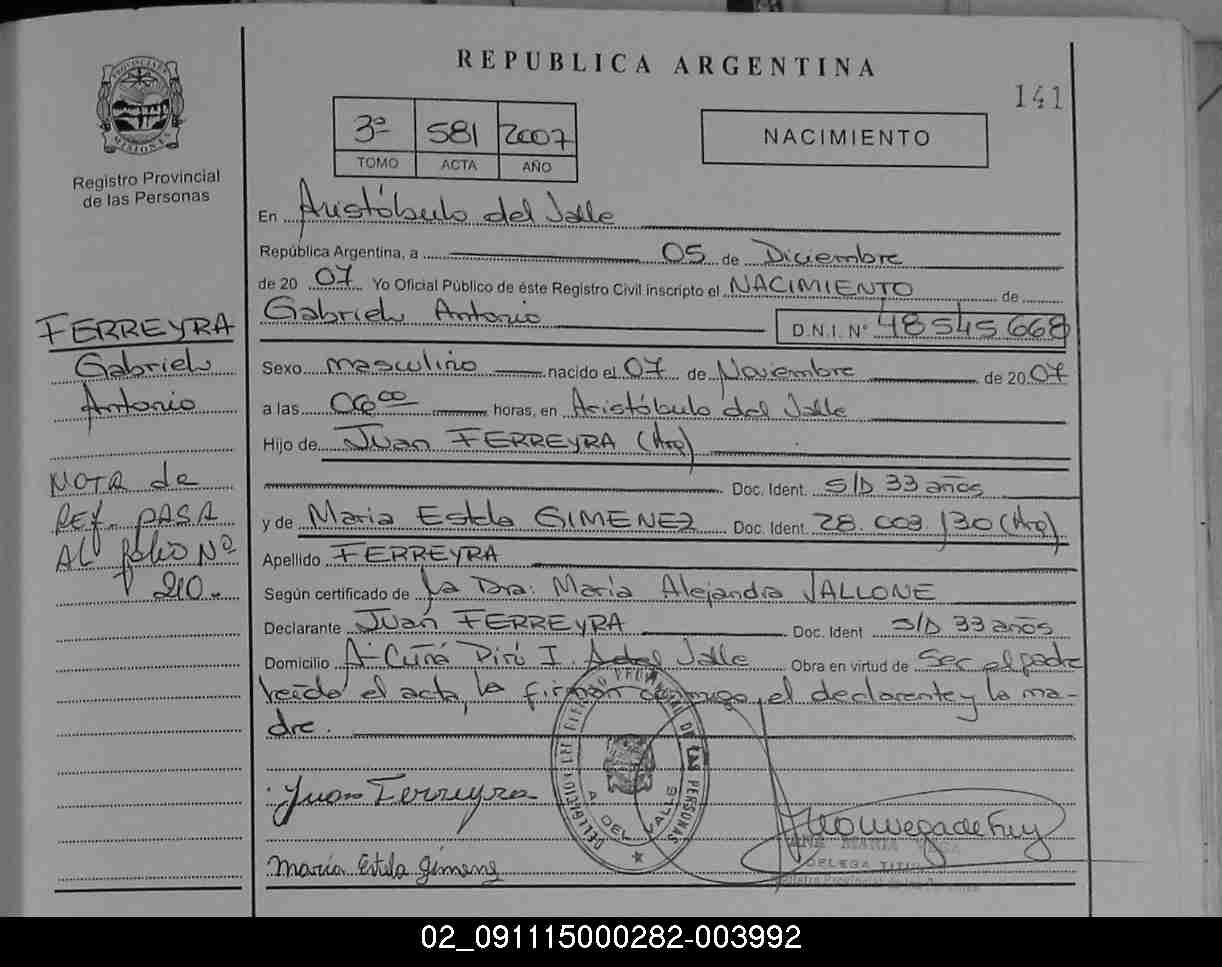 REPUBLICA ARGENTINA
141
PROVINCIA DE MISIONES
Registro Provincial
de las Personas
3º 581 2007
TOMO ACTA AÑO
NACIMIENTO
En Aristóbulo del Valle
República Argentina, a 05 de Diciembre
de 20 07 Yo Oficial Público de éste Registro Civil inscripto el NACIMIENTO de
Gabriel Antonio D.N.I. Nº 48545.668
Sexo masculino nacido el 07 de Noviembre de 20 07
a las 06⁰⁰ horas, en Aristóbulo del Valle
Hijo de Juan FERREYRA (Arg)
Doc. Ident. S/D 33 años
y de Maria Estela GIMENEZ Doc. Ident. 28.003.130 (Arg)
Apellido FERREYRA
Según certificado de La Dra: María Alejandra VALLONE
Declarante Juan FERREYRA Doc. Ident S/D 33 años
Domicilio A- Cuñá Pirú I. A del Valle Obra en virtud de Ser el padre
leída el acta, la firman conmigo, el declarante y la ma-
dre.
FERREYRA
Gabriel
Antonio
NOTA de
Ref. PASA
AL folio Nº
210.-
Juan Ferreyra
María Estela Gimenez
DELEGACION DEL REGISTRO PROVINCIAL DE LAS PERSONAS
A. DEL VALLE
ANA MARIA VEGA
DELEGA TITU
Registro Provincial de las Personas
02_091115000282-003992